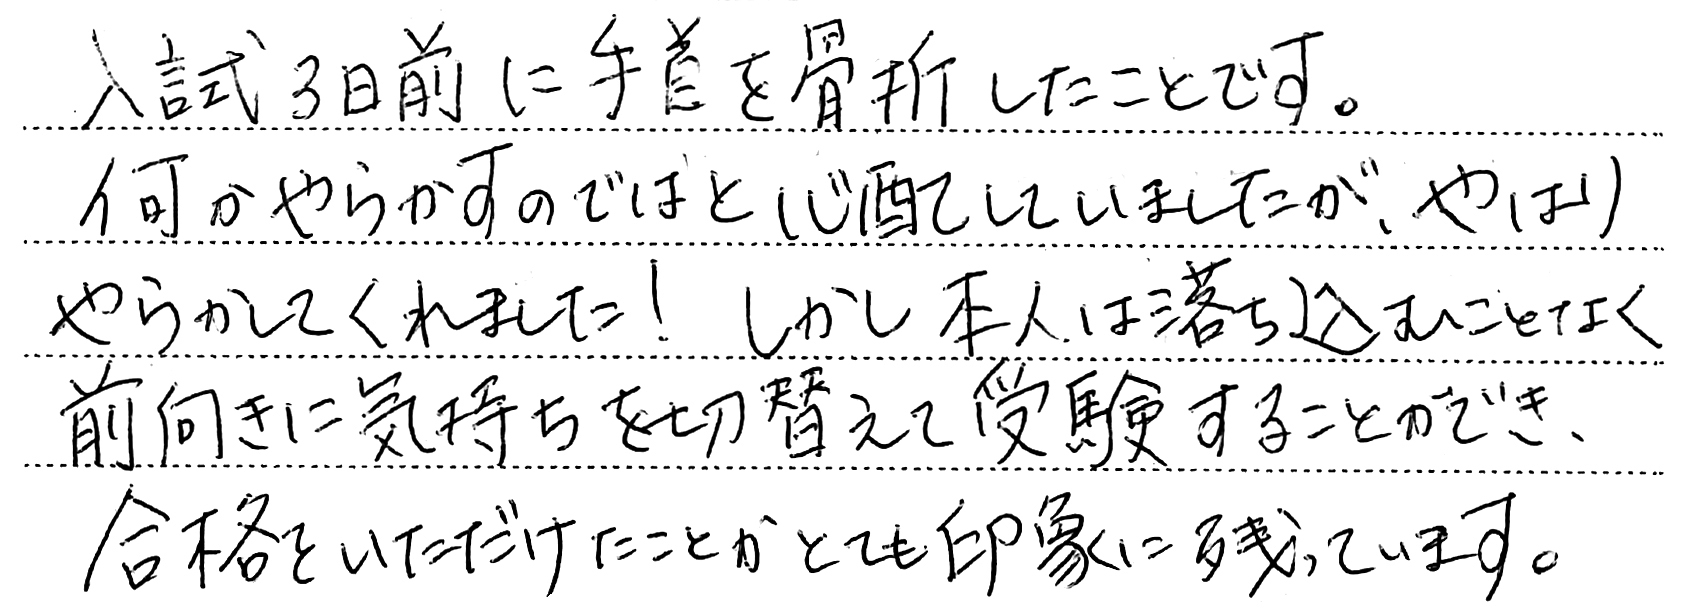 入試3日前に手首を骨折したことです。
何かやらかすのではと心配していましたが、やはり
やらかしてくれました！しかし本人は落ち込むことなく
前向きに気持ちを切替えて受験することができ、
合格をいただけたことがとても印象に残っています。